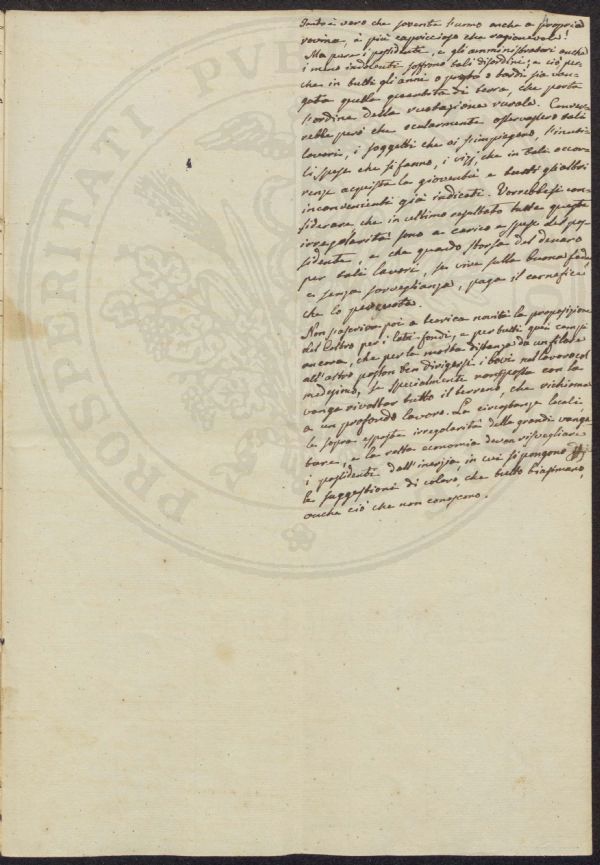 Tanto è vero che sovente l'uomo anche a propria
rovina, è più capriccioso che ragionevole!
Ma pure i possidenti, e gli amministratori anche
i meno indolenti soffrono tali disordini; e ciò per-
che in tutti gli anni o presto o tardi sia van-
gata quella quantità di terra, che porta
l'ordine della ruotazione rurale. Conver-
rebbe però che ocularmente osservassero tali
lavori, i soggetti che ci s'impiegano, l'inuti-
li spese che si fanno, i vizj, che in tali occor-
renze acquista la gioventù e tutti gli altri
inconvenienti già indicati. Dovrebbesi con-
siderare che in ultimo resultato tutte queste
irregolarità sono a carico e spese del pos-
sidente, e che quando sborsa del denaro
per tali lavori, se vive sulla buona fede,
e senza sorveglianza, paga il carnefice
che lo percuote.
Non pascriva poi a teorica novità la proposizione
del Coltro per i lati-fondi, e per tutti quei campi
ancora, che per la molta distanza da un filare
all'altro posson ben dirigersi i bovi nel lavoro col
medesimo, se specialmente render possa con la
vanga rivoltar tutto il terreno, che richiama
a un profondo lavoro. Le circostanze locali,
le sopra esposte irregolarità delle grandi vanga-
ture, e la retta economia devon risvegliare
i possidenti dall'inerzia, in cui si pongono
le suggestioni di coloro, che tutto biasimano,
anche ciò che non conoscono.
PROSPERITATI PVB